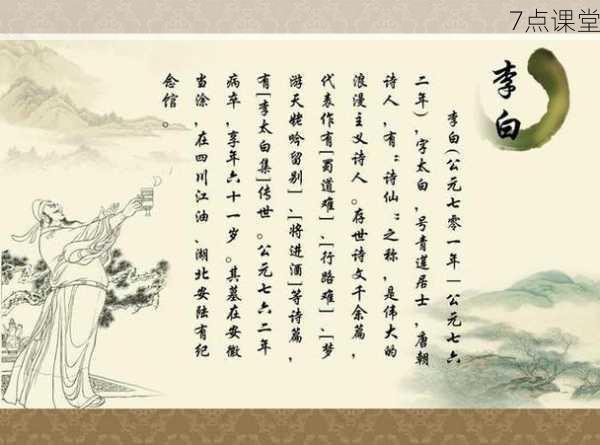 7点课堂
李白
李白(公元七零一年|公元七六
二年)，字太白，号青莲居士，唐朝
诗人，有“诗仙”之称，是伟大的
浪漫主义诗人。存世诗文千余篇，
代表作有[蜀道难]、[行路难]、[梦
游天姥吟留别]、[将进酒]等诗篇，
有[李太白集]传世。公元七六二年
病卒，享年六十一岁。其墓在安徽
当涂，在四川江油、湖北安陆有纪
念馆。